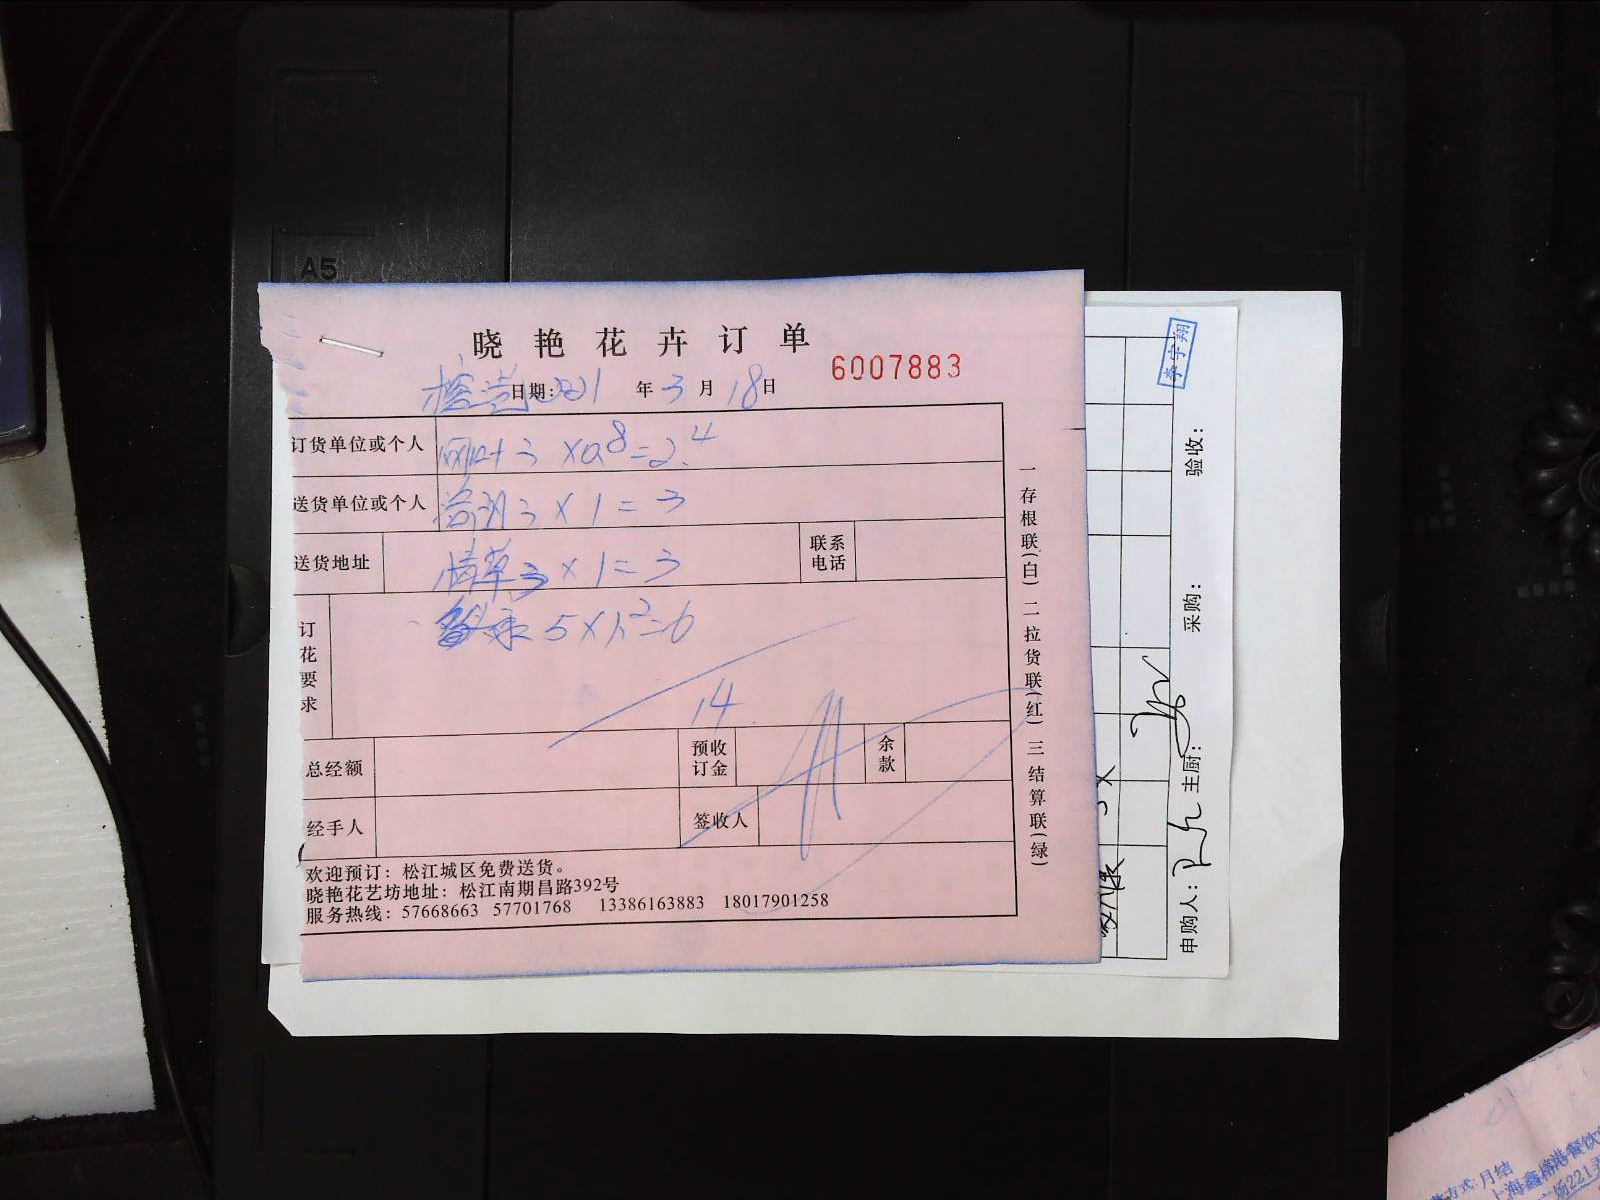 A5
晓艳花卉订单
6007883
日期: 2021年3月18日
订货单位或个人
3×0.8=2.4
送货单位或个人
3×1=3
送货地址
情草3×1=3
联系电话
5×1.2=6
订花要求
14
总经额
预收订金
余款
经手人
签收人
欢迎预订:松江城区免费送货。
晓艳花艺坊地址:松江南期昌路392号
服务热线:57668663 57701768 13386163883 18017901258
一存根联(白) 二拉货联(红) 三结算联(绿)
李宇翔
申购人: 主厨: 采购: 验收:
方式:月结
上海鑫榕港餐饮
221弄